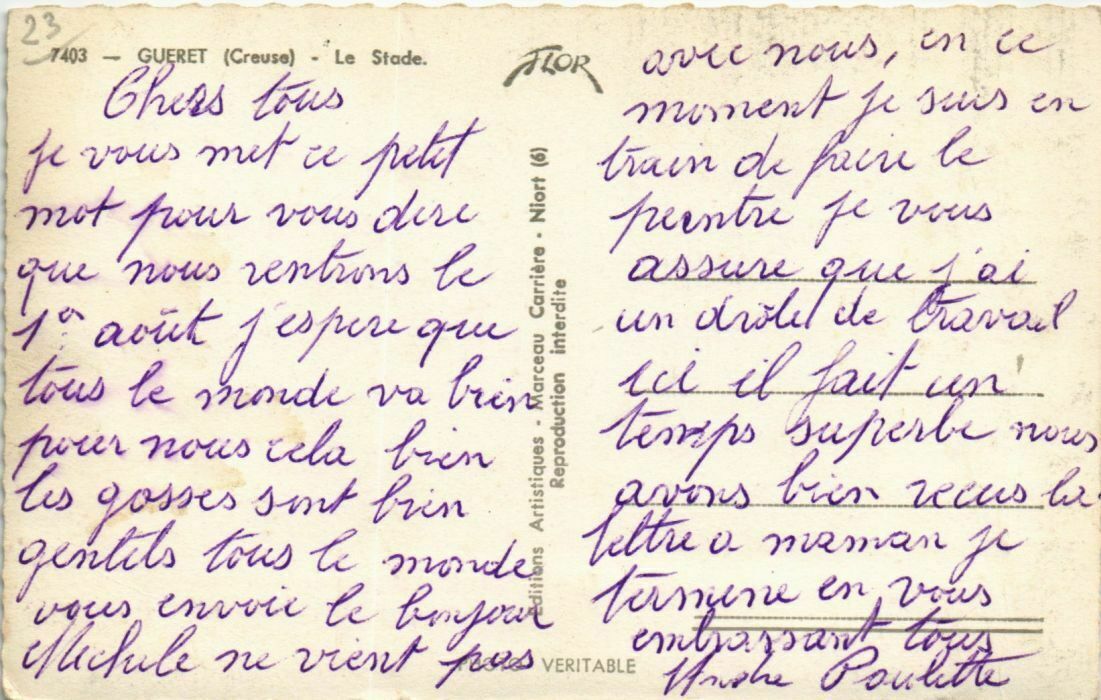 23
7403 — GUERET (Creuse) - Le Stade.
FLOR
Chers tous
je vous met ce petit
mot pour vous dire
que nous rentrons le
1er août j'espere que
tous le monde va bien
pour nous cela bien
les gosses sont bien
gentils tous le monde
vous envoie le bonjour
Michele ne vient pas
Editions Artistiques - Marceau Carrière - Niort (6)
Reproduction interdite
VERITABLE
avec nous, en ce
moment je suis en
train de faire le
peintre je vous
assure que j'ai
un drôle de travail
ici il fait un
temps superbe nous
avons bien recus la
lettre a maman je
termine en vous
embrassant tous
Andre Paulette